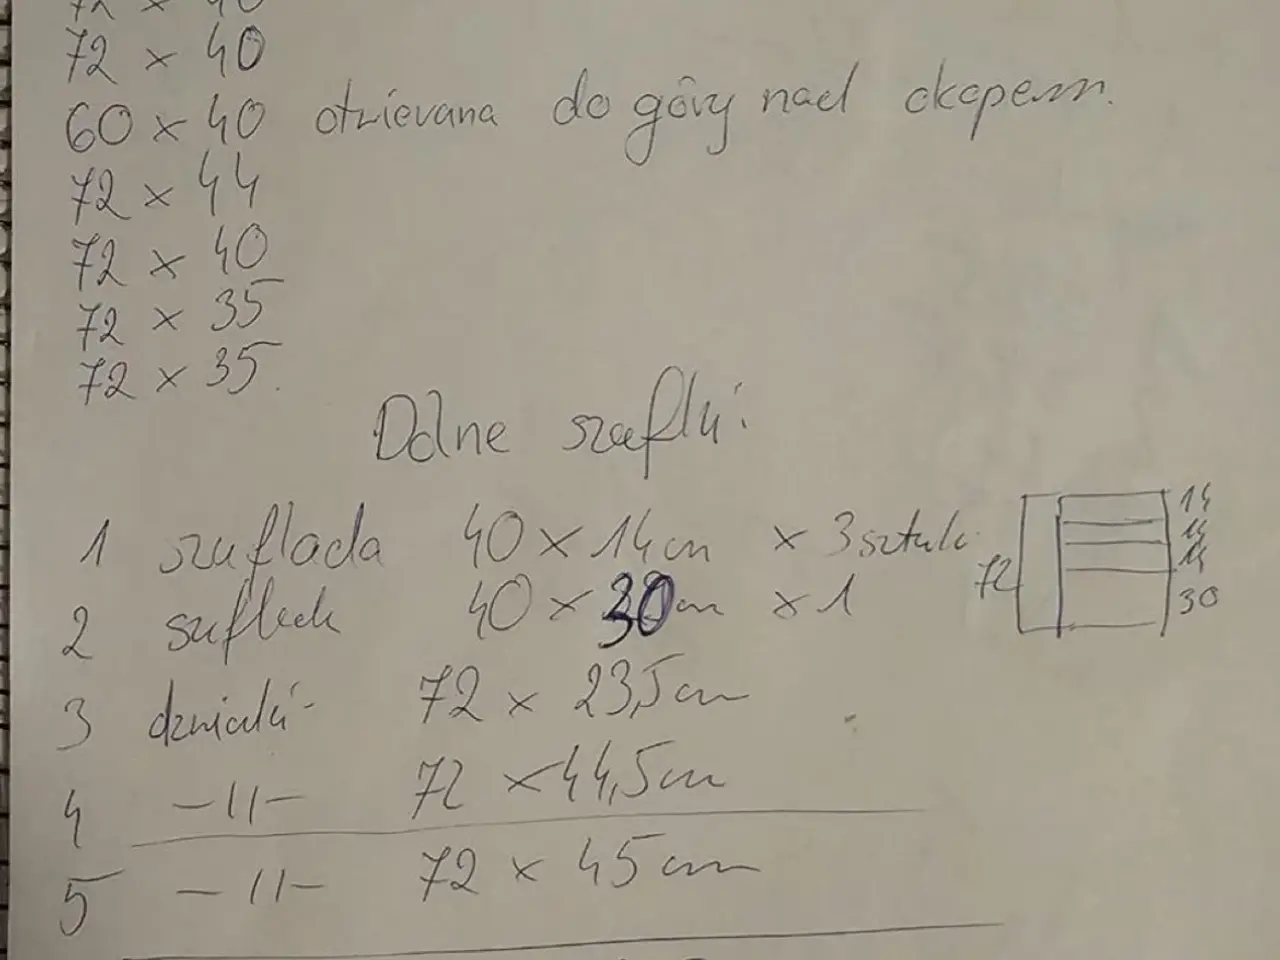 72 x 40
72 x 40
60 x 40 otwierana do góry nad okapem.
72 x 44
72 x 40
72 x 35
72 x 35.
Dolne szafki:
1 szuflada 40 x 14 cm x 3 sztuki
2 szuflada 40 x 30 cm x 1
72
14
14
14
30
3 drzwiczki - 72 x 23,5 cm
4 -11- 72 x 44,5 cm
5 -11- 72 x 45 cm